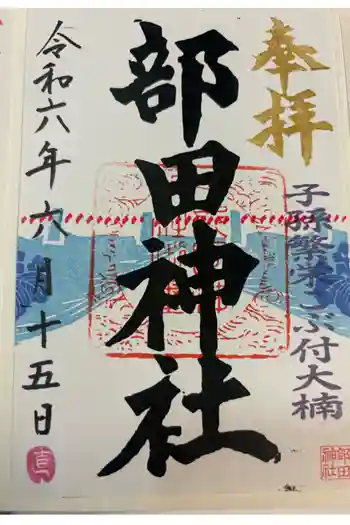 奉拝
子孫繁栄こぶ付大楠
部田神社
令和六年六月十五日
部田
神社